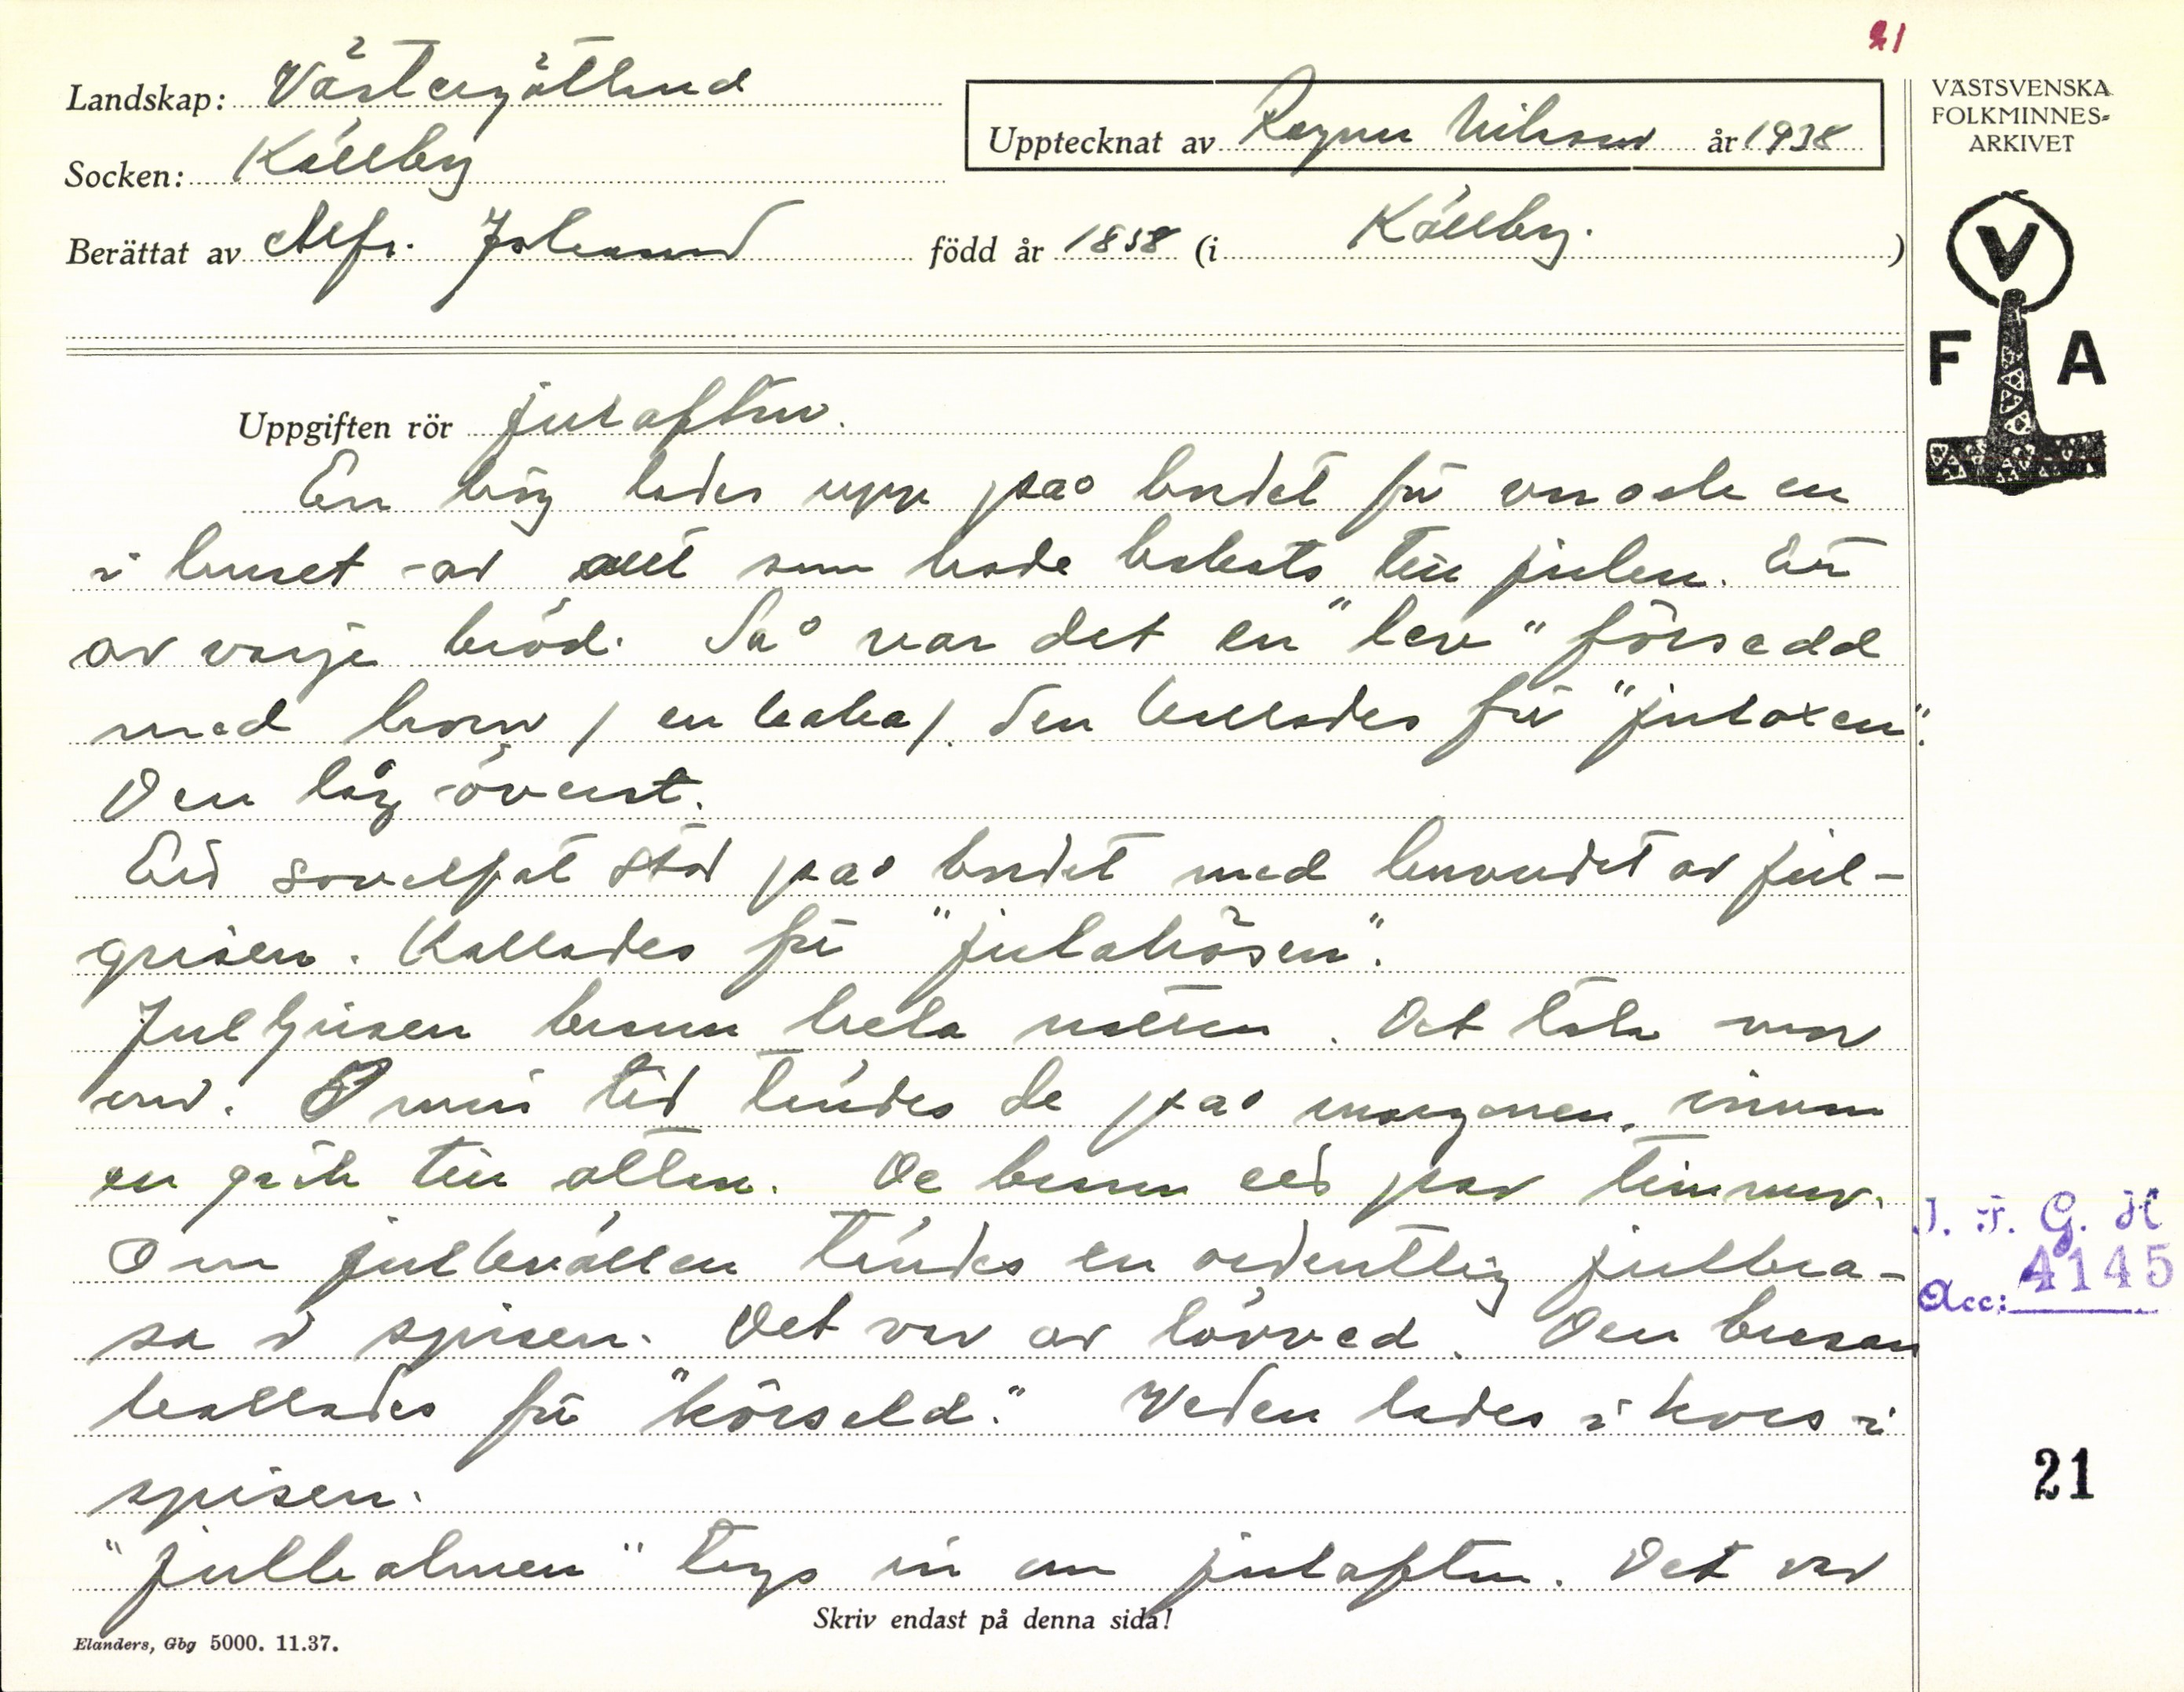 21
Landskap: Västergötland
Upptecknat av Ragnar Nilsson år 1938
VÄSTSVENSKA
FOLKMINNES=
ARKIVET
Socken: Källby
Berättat av Alfr. född år 1858 (i Källby.)
V
F A
Uppgiften rör julafton.
En hög lades upp på bordet för var och en
i huset av allt som hade bakats till julen. Ett
av varje bröd. Så var det en "lev" försedd
med horn / en kaka /. Den kallades för "juloxen".
Den låg överst.
Ett sovelfat stod på bordet med huvudet av jul-
grisen. Kallades för "julahösen".
Julljusen brann hela natten. Det talte mor
om. I min tid tändes de på morgonen, innan
en gick till ottan. De brann ett par timmar.
Om julkvällen tändes en ordentlig julbra-
sa i spisen. Det var av lövved. Den brasan
kallades för "körseld." Veden lades i kors i
spisen.
"julhalmen" togs in om julafton. Det var
Skriv endast på denna sida!
Elanders, Gbg 5000. 11.37.
I. F. G. H
Acc: 4145
21